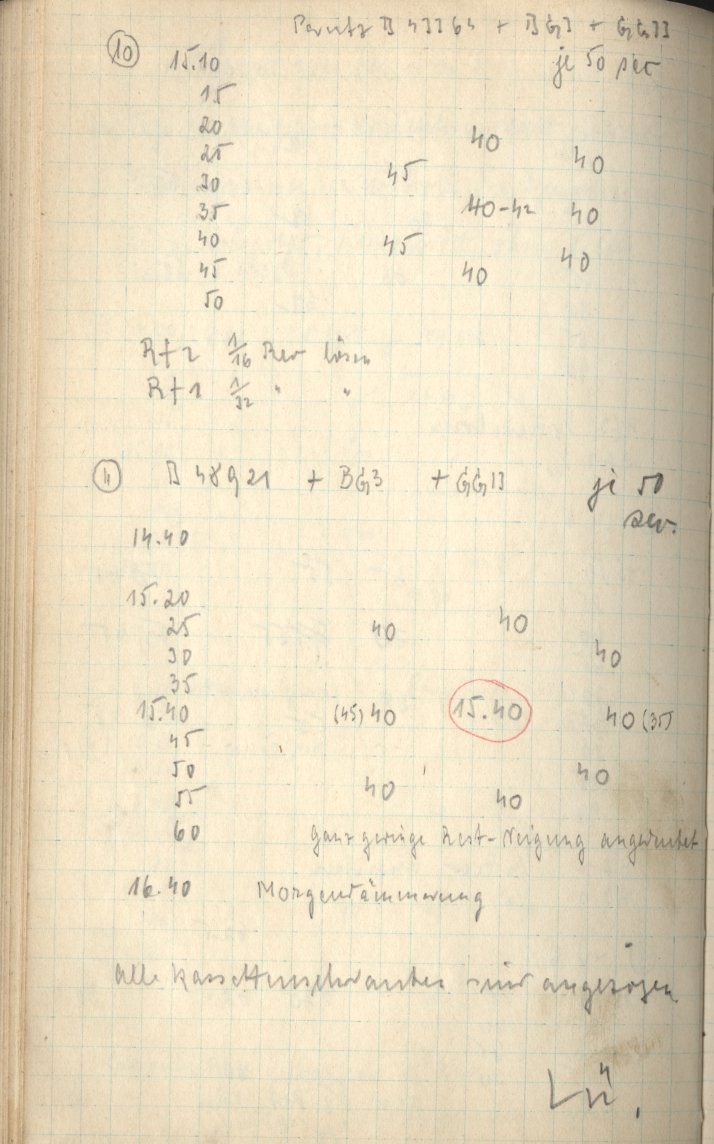 Perutz B 43364 + BG3 + GG11
10 15.10 je 50 sec
15
20 40
25 40
30 45
35 40-42 40
40 45 40
45 40
50
1/16 Rev lösen
1/32 " "
B 48921 + BG3 + GG11 je 50
sec.
14.40
15.20
25 40 40
30 40
35
15.40 (45) 40 15.40 40 (35)
45
50 40
55 40 40
60 ganz geringe Rest-Neigung angedeutet
16.40 Morgendämmerung
alle Kassettenschrauben angezogen
Lü.